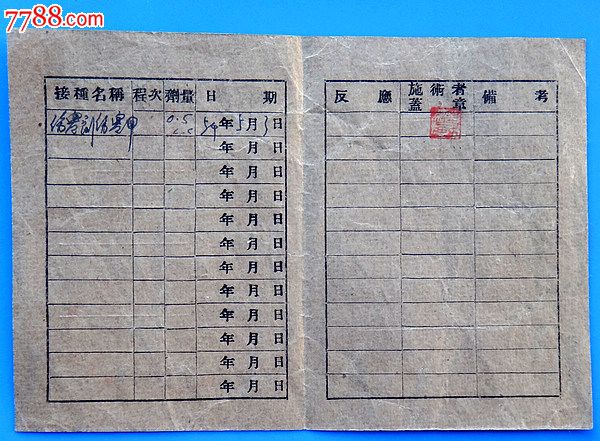 7788.com
接種名稱 程次 劑量 日 期
0.5 54年5月3日
年 月 日
年 月 日
年 月 日
年 月 日
年 月 日
年 月 日
年 月 日
年 月 日
年 月 日
年 月 日
年 月 日
反 應 施術者蓋章 備 考